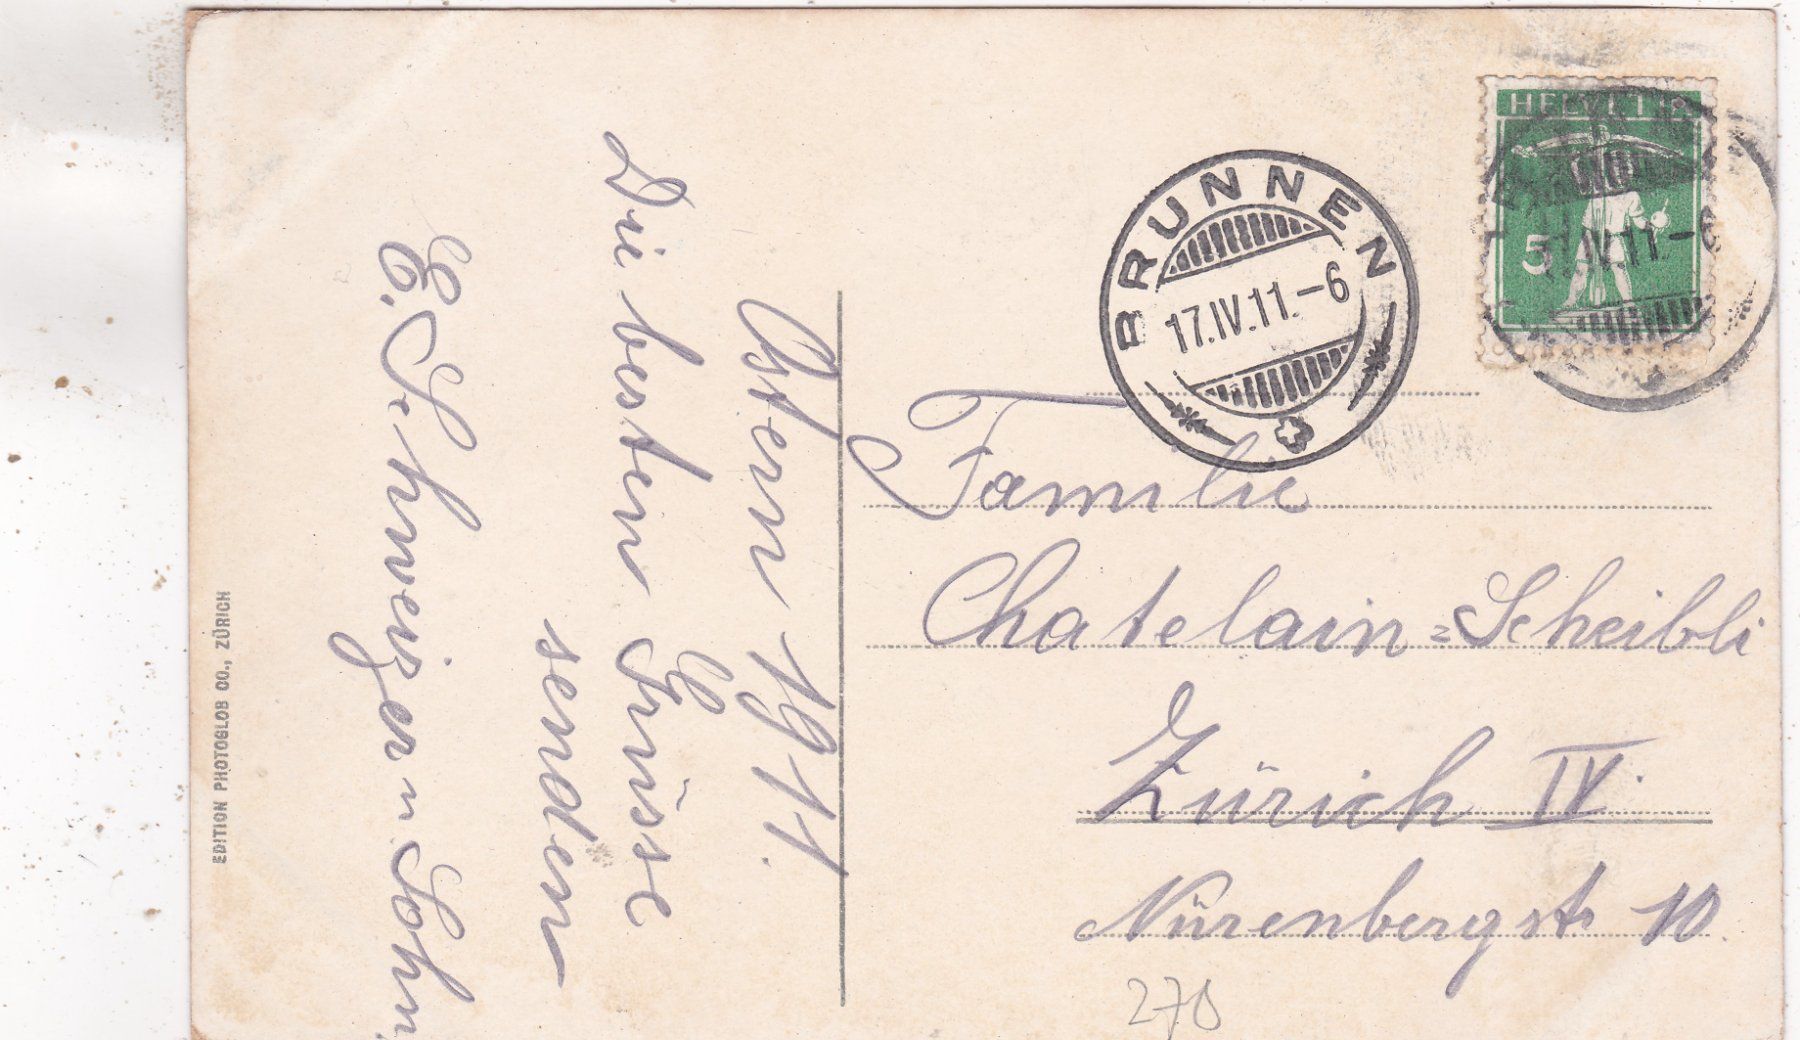 Ostern 1911.
Die besten Grüsse
senden
E. Schweizer u Sohn
EDITION PHOTOGLOB CO., ZÜRICH
HELVETIA
5
17.IV.11.-6
BRUNNEN
17.IV.11.-6
Familie
Chatelain=Scheibli
Zürich IV.
Nürenbergstr 10.
270